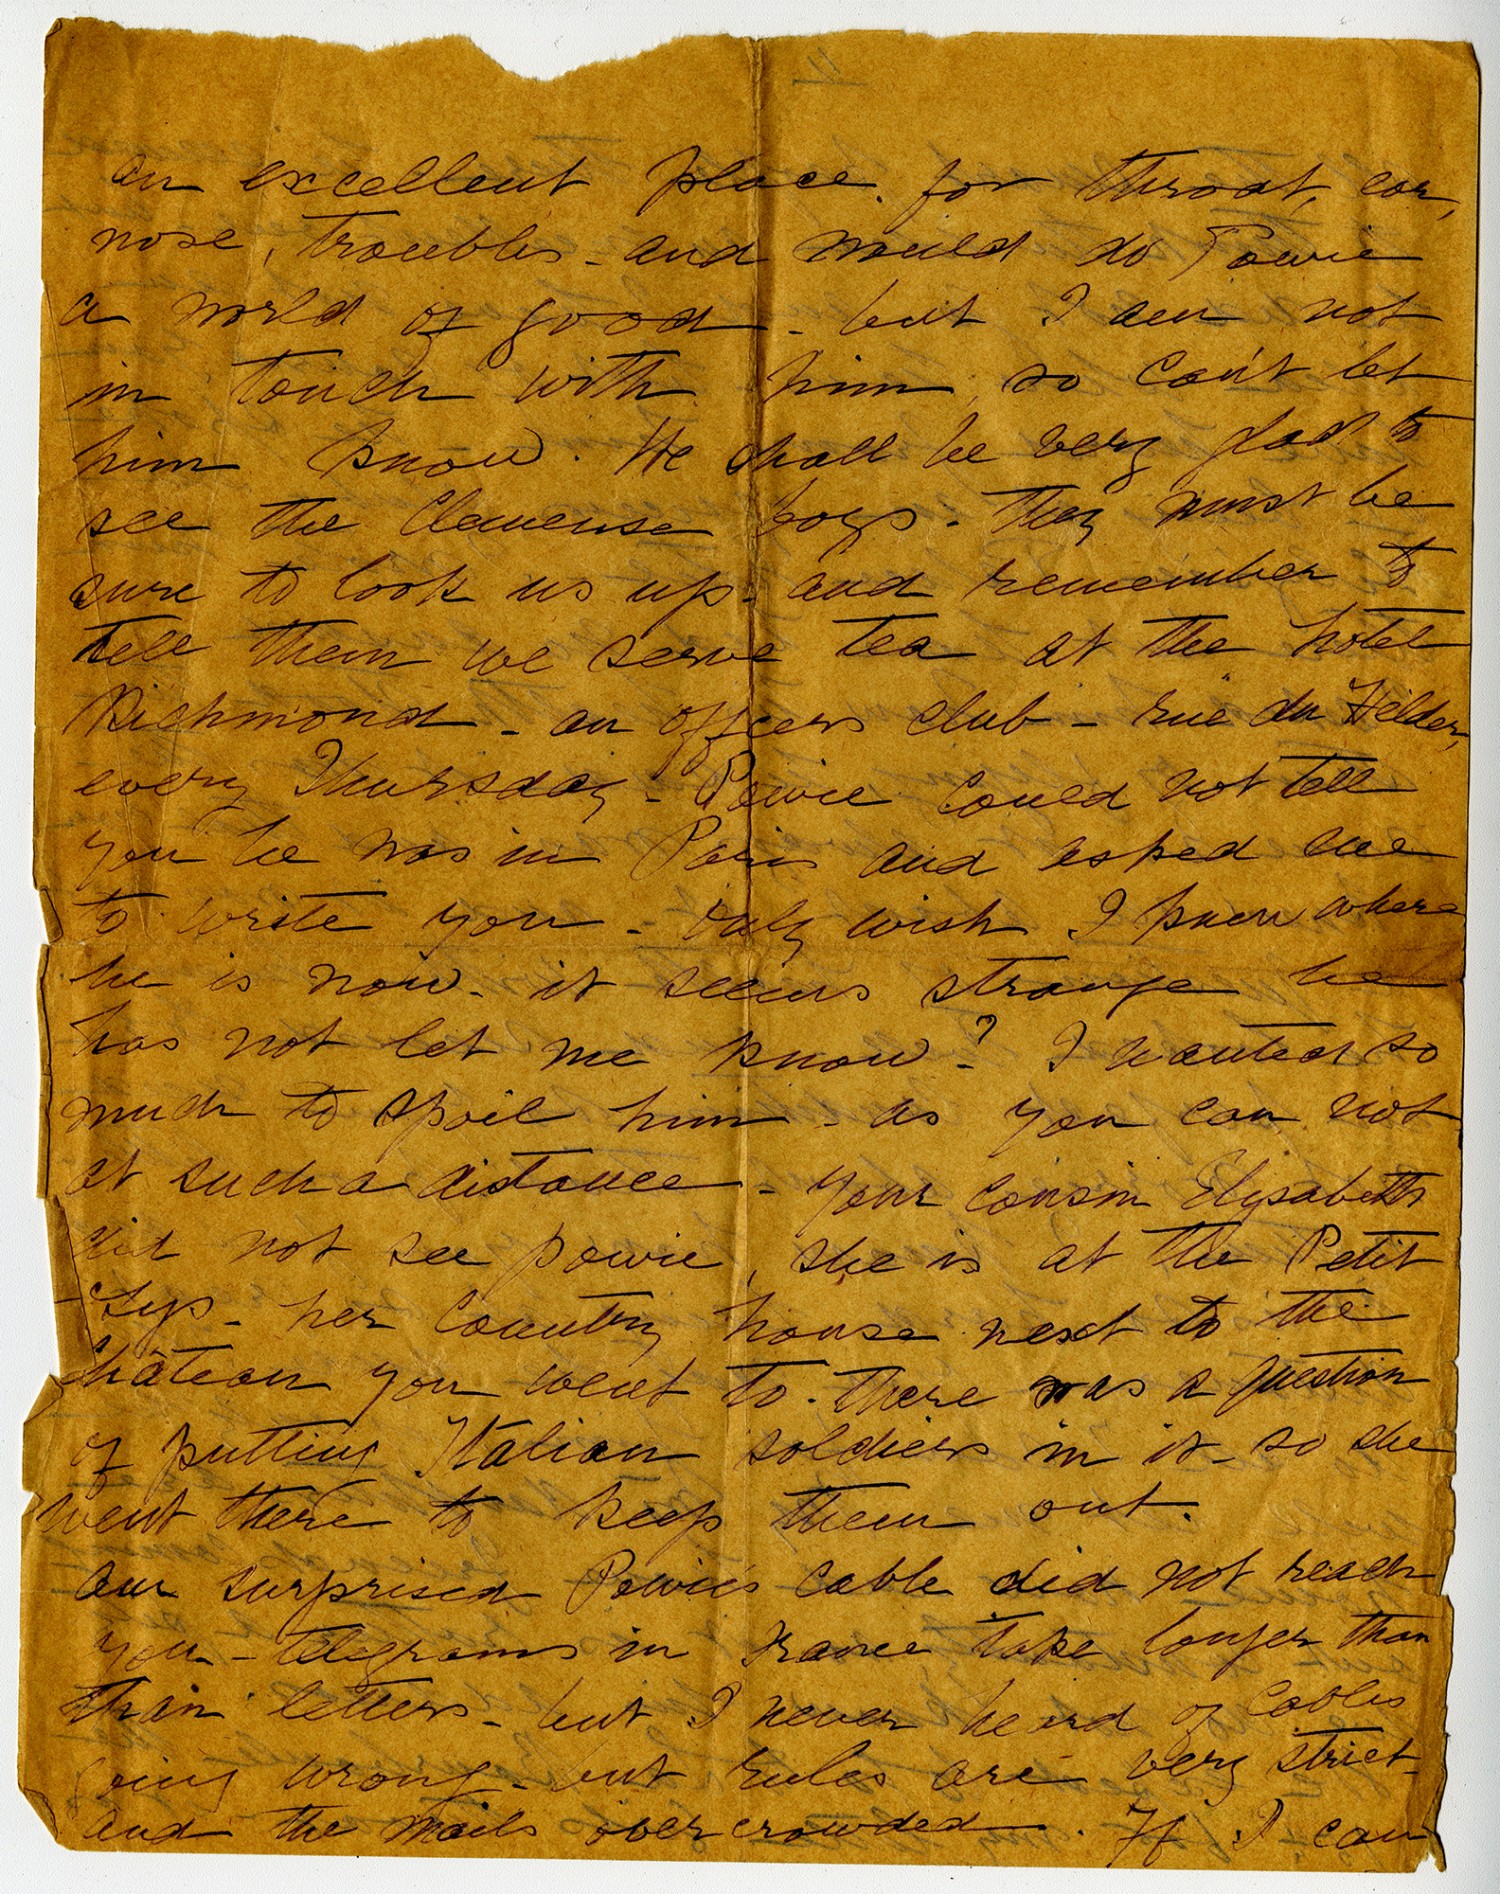 an excellent place. for throat, ear,
nose, troubles - and would do Powie
a world of good - but I am not
in touch with him, so can't let
him know. We shall be very glad to
see the boys - they must be
sure to look us up. and remember to
tell them we serve tea at the hotel
Richmond - an officers club - rue du Helder,
every Thursday - Powie could not tell
you he was in Paris and asked me
to write you - Only wish I knew where
he is now - it seems strange he
has not let me know? I wanted so
much to spoil him - as you can not
at such a distance - your cousin Elysabeth
did not see Powie, she is at the Petit
Lys - her country house next to the
château you went to. there was a question
of putting Italian soldiers in it - so she
went there to keep them out.
am surprised Powie's cable did not reach
you - telegrams in France take longer than
than letters - but I never heard of cables
going wrong - but rules are very strict -
and the mails overcrowded. If I can